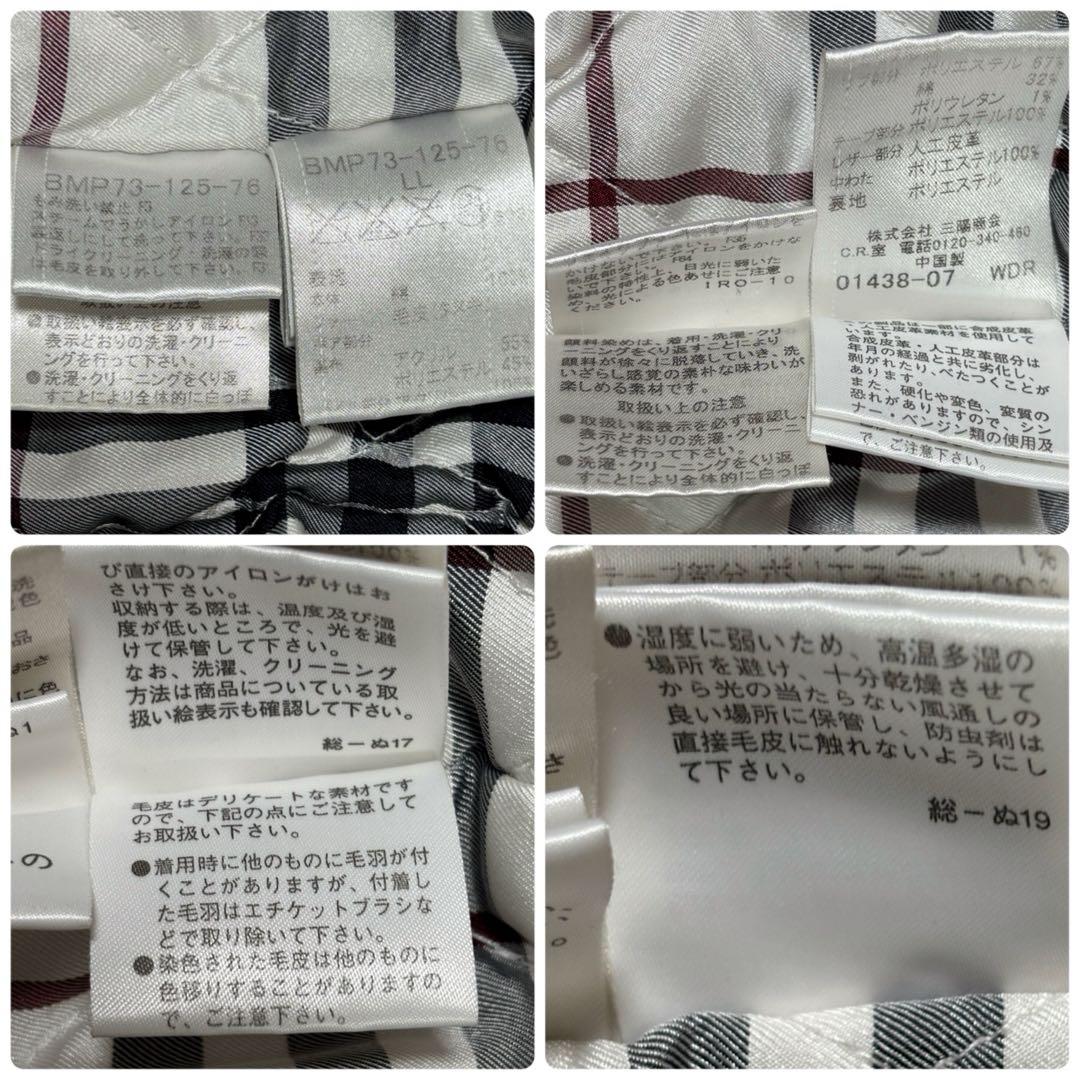 BMP73-125-76
もみ洗い禁止
スチームでうかしアイロン
裏返しにして洗って下さい
ドライクリーニング
は毛皮を取り外して下さい
●取扱い絵表示を必ず確認し、
表示どおりの洗濯・クリーニ
ングを行って下さい。
●洗濯・クリーニングをくり返
すことにより全体的に白っぽ
BMP73-125-76
LL
綿
毛皮
ポリエステル
かけないで下アイロンをかけな
毛皮部分には
いで下さい。
染料の特性上、日光に弱いた
め、光による色あせにご注意
ください。
IRO-10
顔料染めは、着用・洗濯・クリ
ーニングをくり返すことにより
顔料が徐々に脱落していき、洗
いざらし感覚の素朴な味わいが
楽しめる素材です。
取扱い上の注意
●取扱い絵表示を必ず確認し、
表示どおりの洗濯・クリーニ
ングを行って下さい。
●洗濯・クリーニングをくり返
すことにより全体的に白っぽ
ポリエステル 67%
綿 32%
ポリウレタン 1%
テープ部分 ポリエステル100%
レザー部分 人工皮革
中わた ポリエステル100%
裏地 ポリエステル
株式会社 三陽商会
C.R.室 電話0120-340-460
中国製
01438-07 WDR
の製品は一部に合成皮革
・人工皮革素材を使用して
います。
合成皮革・人工皮革部分は
年月の経過と共に劣化し、
剥がれたり、べたつくことが
あります。
また、硬化や変色、変質の
恐れがありますので、シン
ナー・ベンジン類の使用及
で、ご注意下さい。
び直接のアイロンがけはお
さけ下さい。
収納する際は、温度及び湿
度が低いところで、光を避
けて保管して下さい。
なお、洗濯、クリーニング
方法は商品についている取
扱い絵表示も確認して下さい。
総ーぬ17
毛皮はデリケートな素材です
ので、下記の点にご注意して
お取扱い下さい。
●着用時に他のものに毛羽が付
くことがありますが、付着し
た毛羽はエチケットブラシな
どで取り除いて下さい。
●染色された毛皮は他のものに
色移りすることがありますの
で、ご注意下さい。
●湿度に弱いため、高温多湿の
場所を避け、十分乾燥させて
から光の当たらない風通しの
良い場所に保管し、防虫剤は
直接毛皮に触れないようにし
て下さい。
総ーぬ19